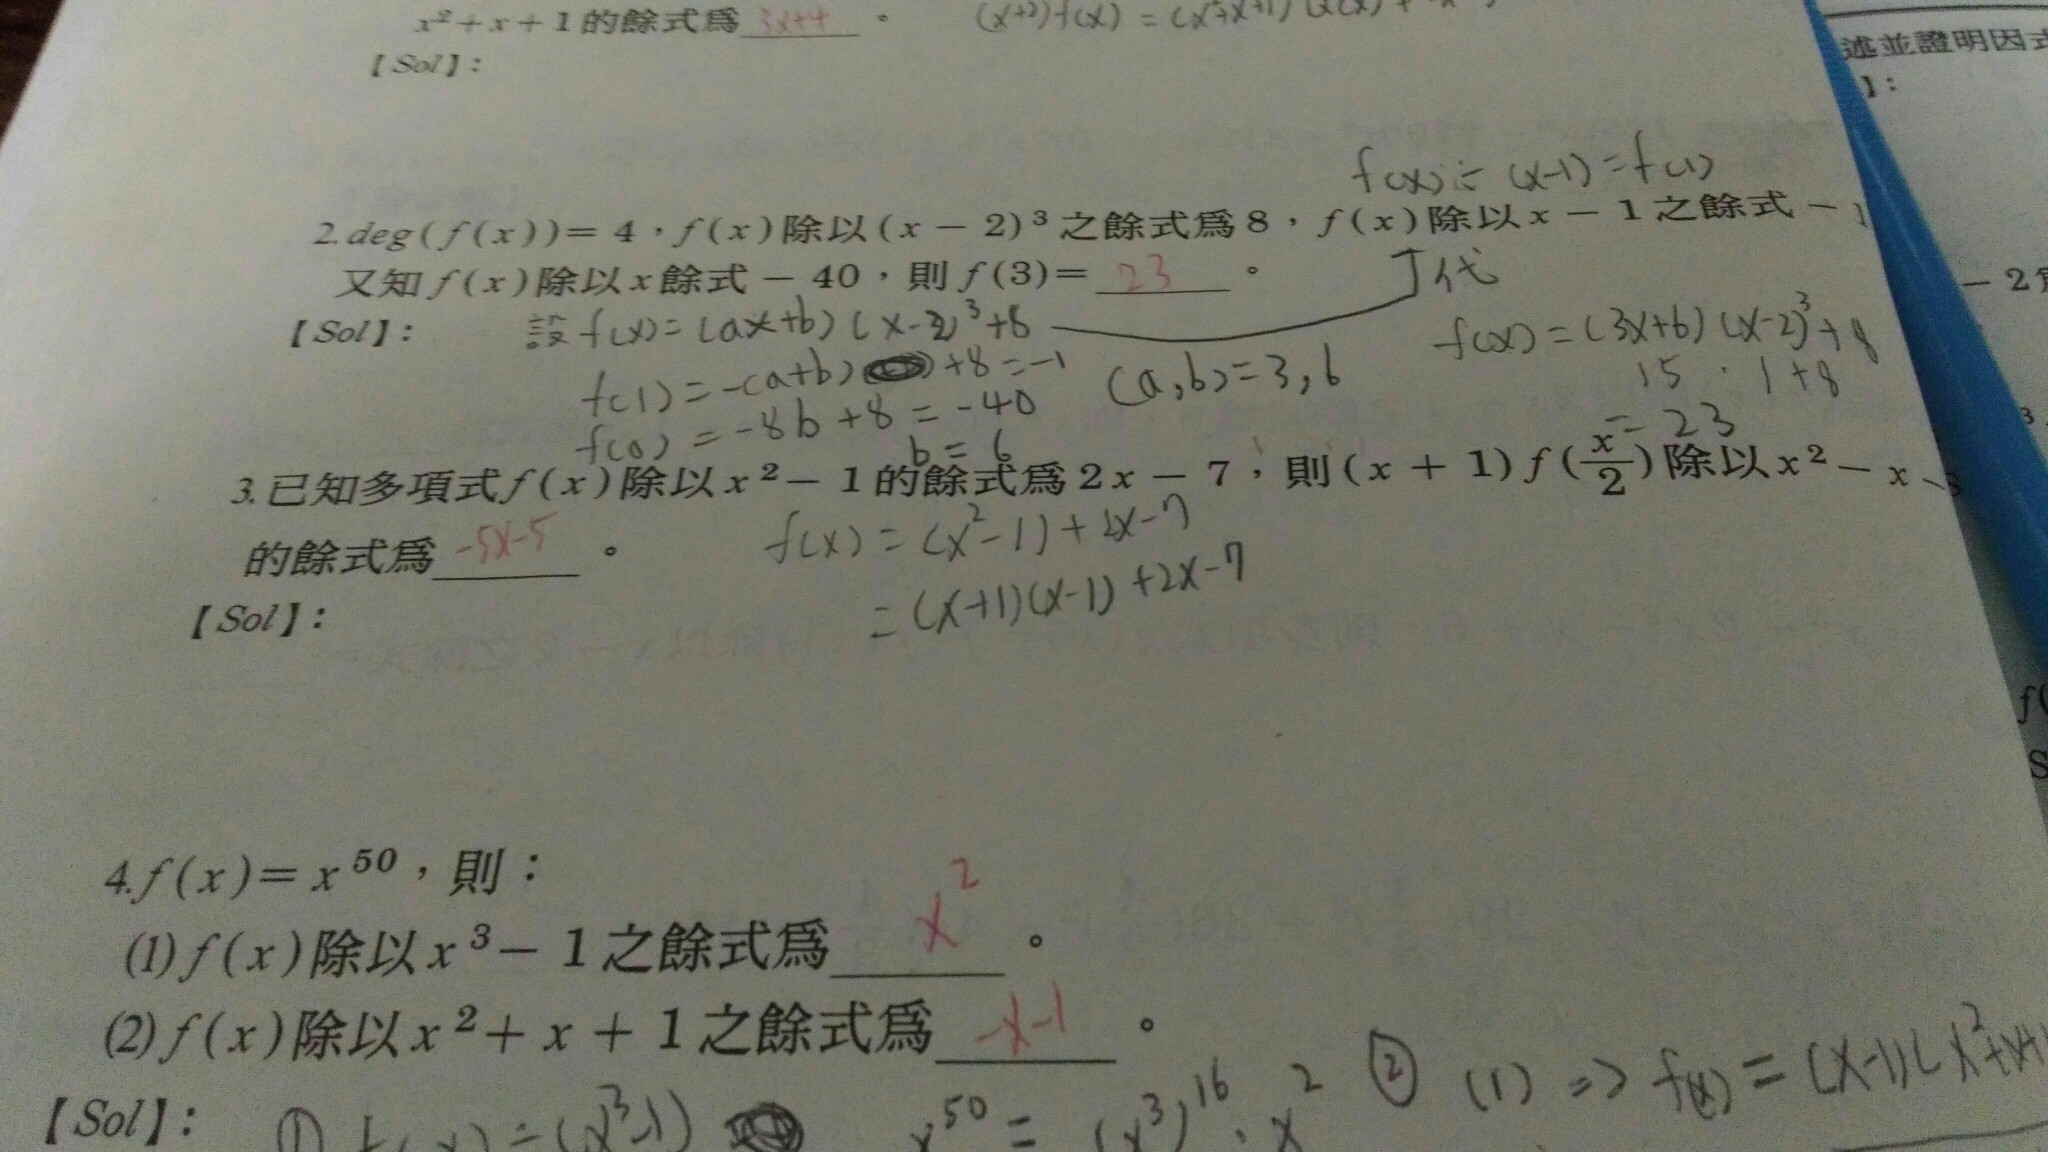 x²+x+1的餘式爲 3x+4 。
(x+2)f(x) = (x²+x+1)
【Sol】:
述並證明因式
】:
f(x)÷(x-1)=f(1)
2.deg(f(x))=4,f(x)除以(x-2)³之餘式爲8,f(x)除以x-1之餘式-1
又知f(x)除以x餘式-40,則f(3)= 23 。
代
-2
【Sol】:
設f(x)=(ax+b)(x-2)³+8
f(x)=(3x+6)(x-2)³+8
f(1)=-(a+b) +8=-1
(a,b)=3,6
15·1+8
f(0)=-8b+8=-40
=23
b=6
3.已知多項式f(x)除以x²-1的餘式爲2x-7,則(x+1)f(x/2)除以x²-x-
的餘式爲 -5x-5 。
f(x)=(x²-1)+2x-7
=(x+1)(x-1)+2x-7
【Sol】:
f(
S
4.f(x)=x⁵⁰,則:
(1)f(x)除以x³-1之餘式爲 x² 。
(2)f(x)除以x²+x+1之餘式爲 -x-1 。
【Sol】:
① f(x)=(x³-1)
x⁵⁰=(x³)¹⁶·x²
② (1)=>f(x)=(x-1)(x²+x+1